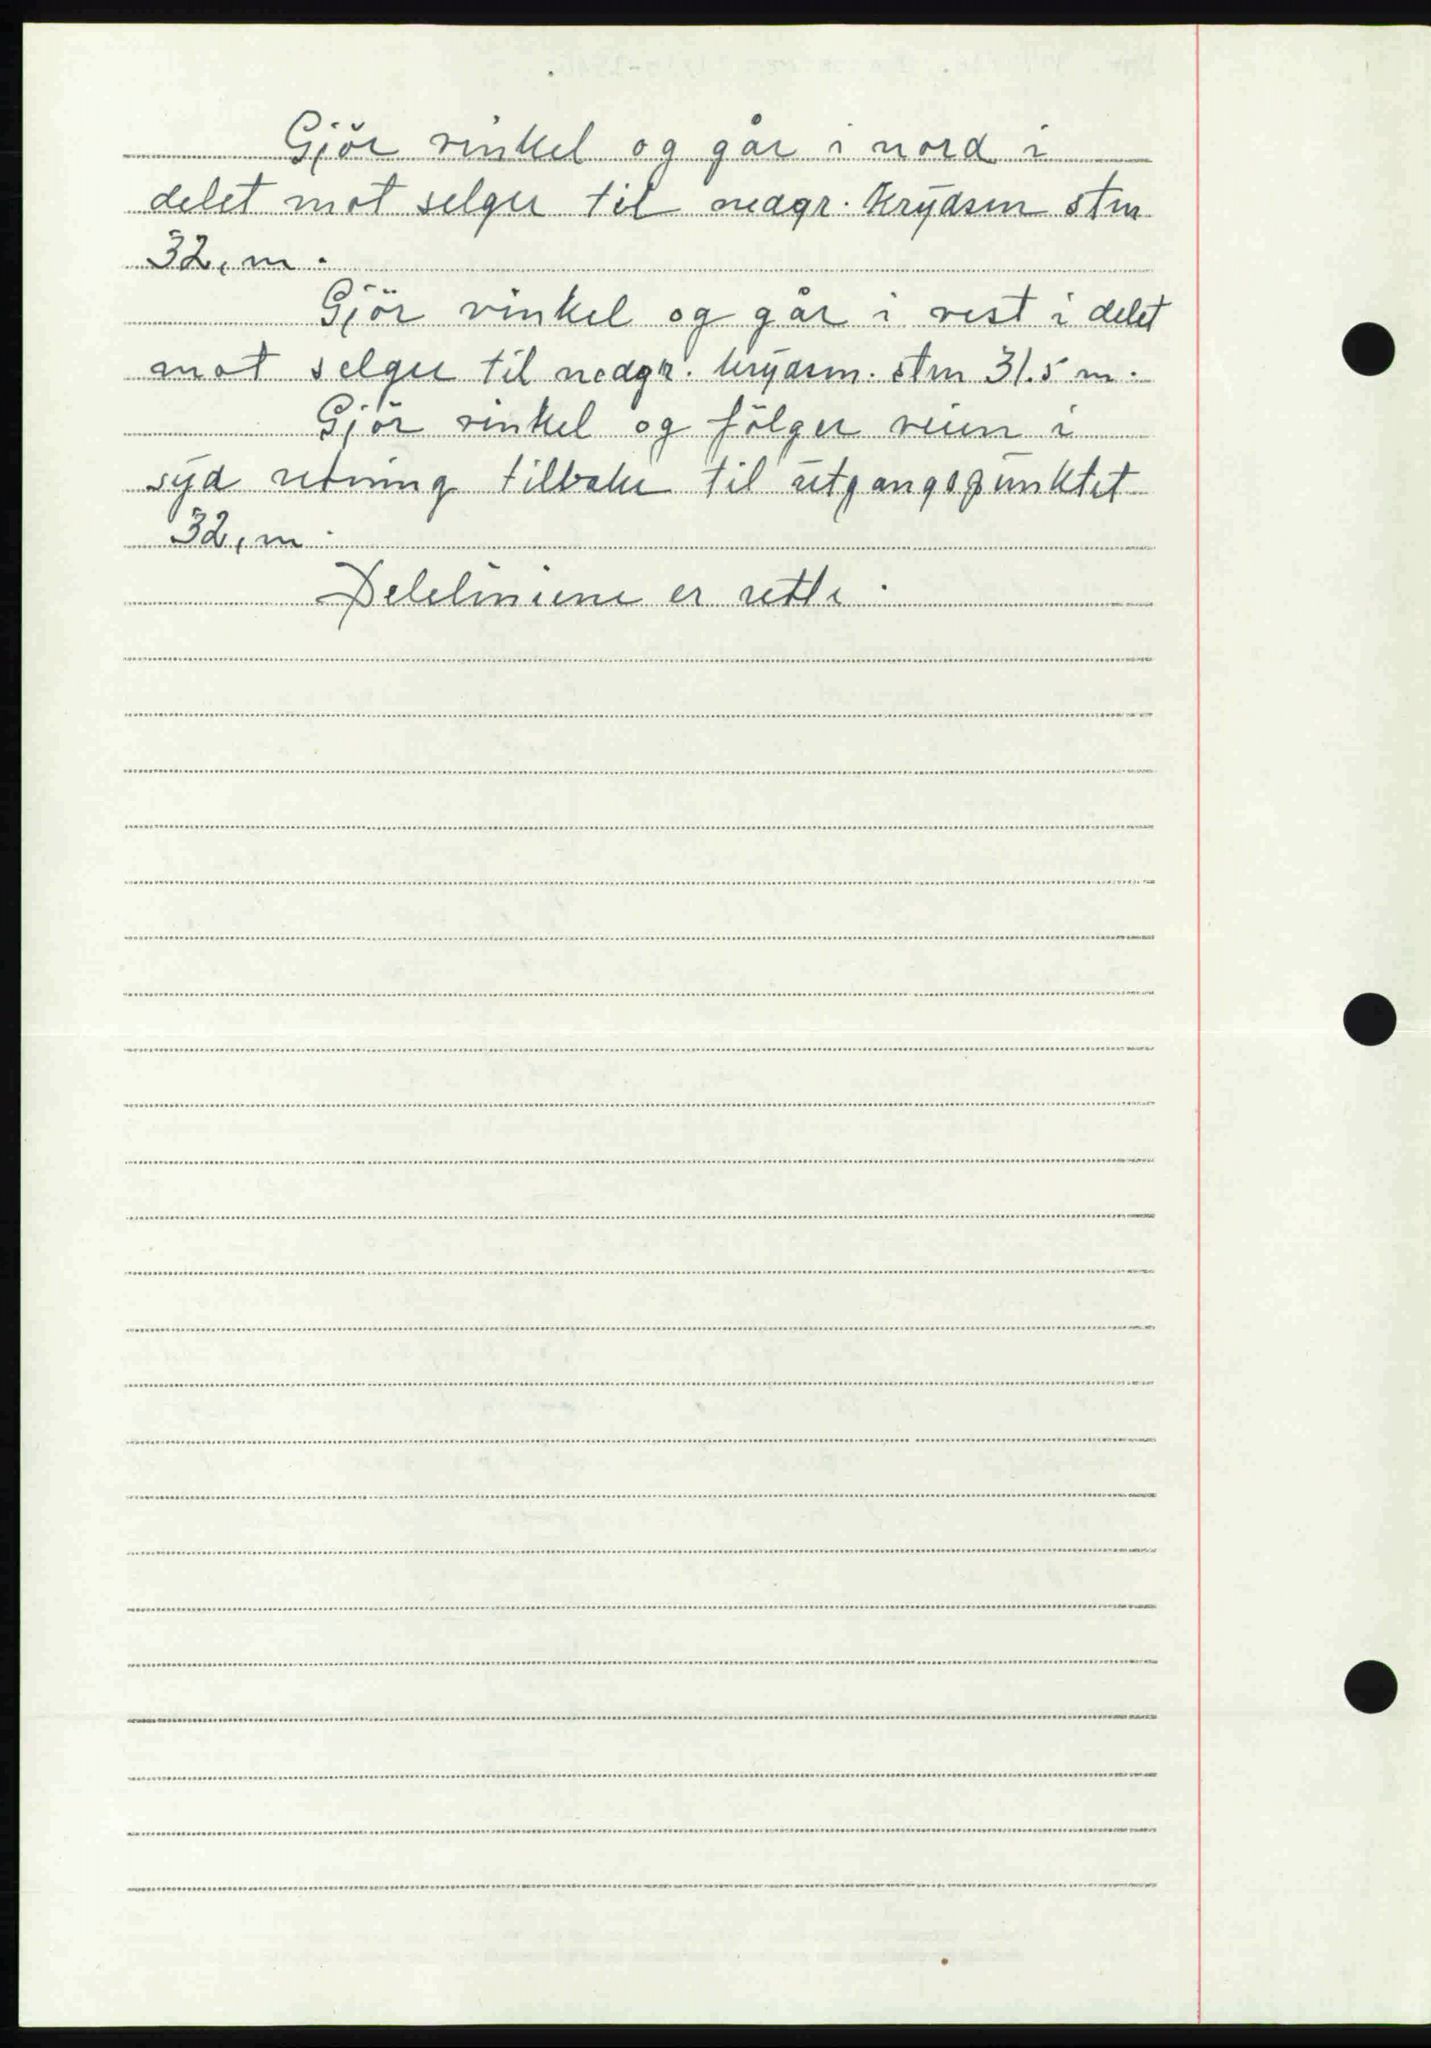 Gjör vinkel og går i nord i
delet mot selger til nedgr. krydsm stm
32, m.
Gjör vinkel og går i vest i delet
mot selger til nedgr. krydsm. stm 31.5 m.
Gjör vinkel og fölger veien i
syd retning tilbake til utgangspunktet
32, m.
Deleliniene er rette.